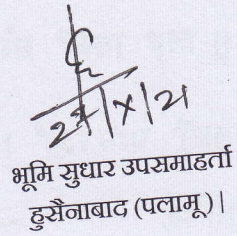 27/X/21
भूमि सुधार उपसमाहर्ता
हुसैनाबाद (पलामू)|